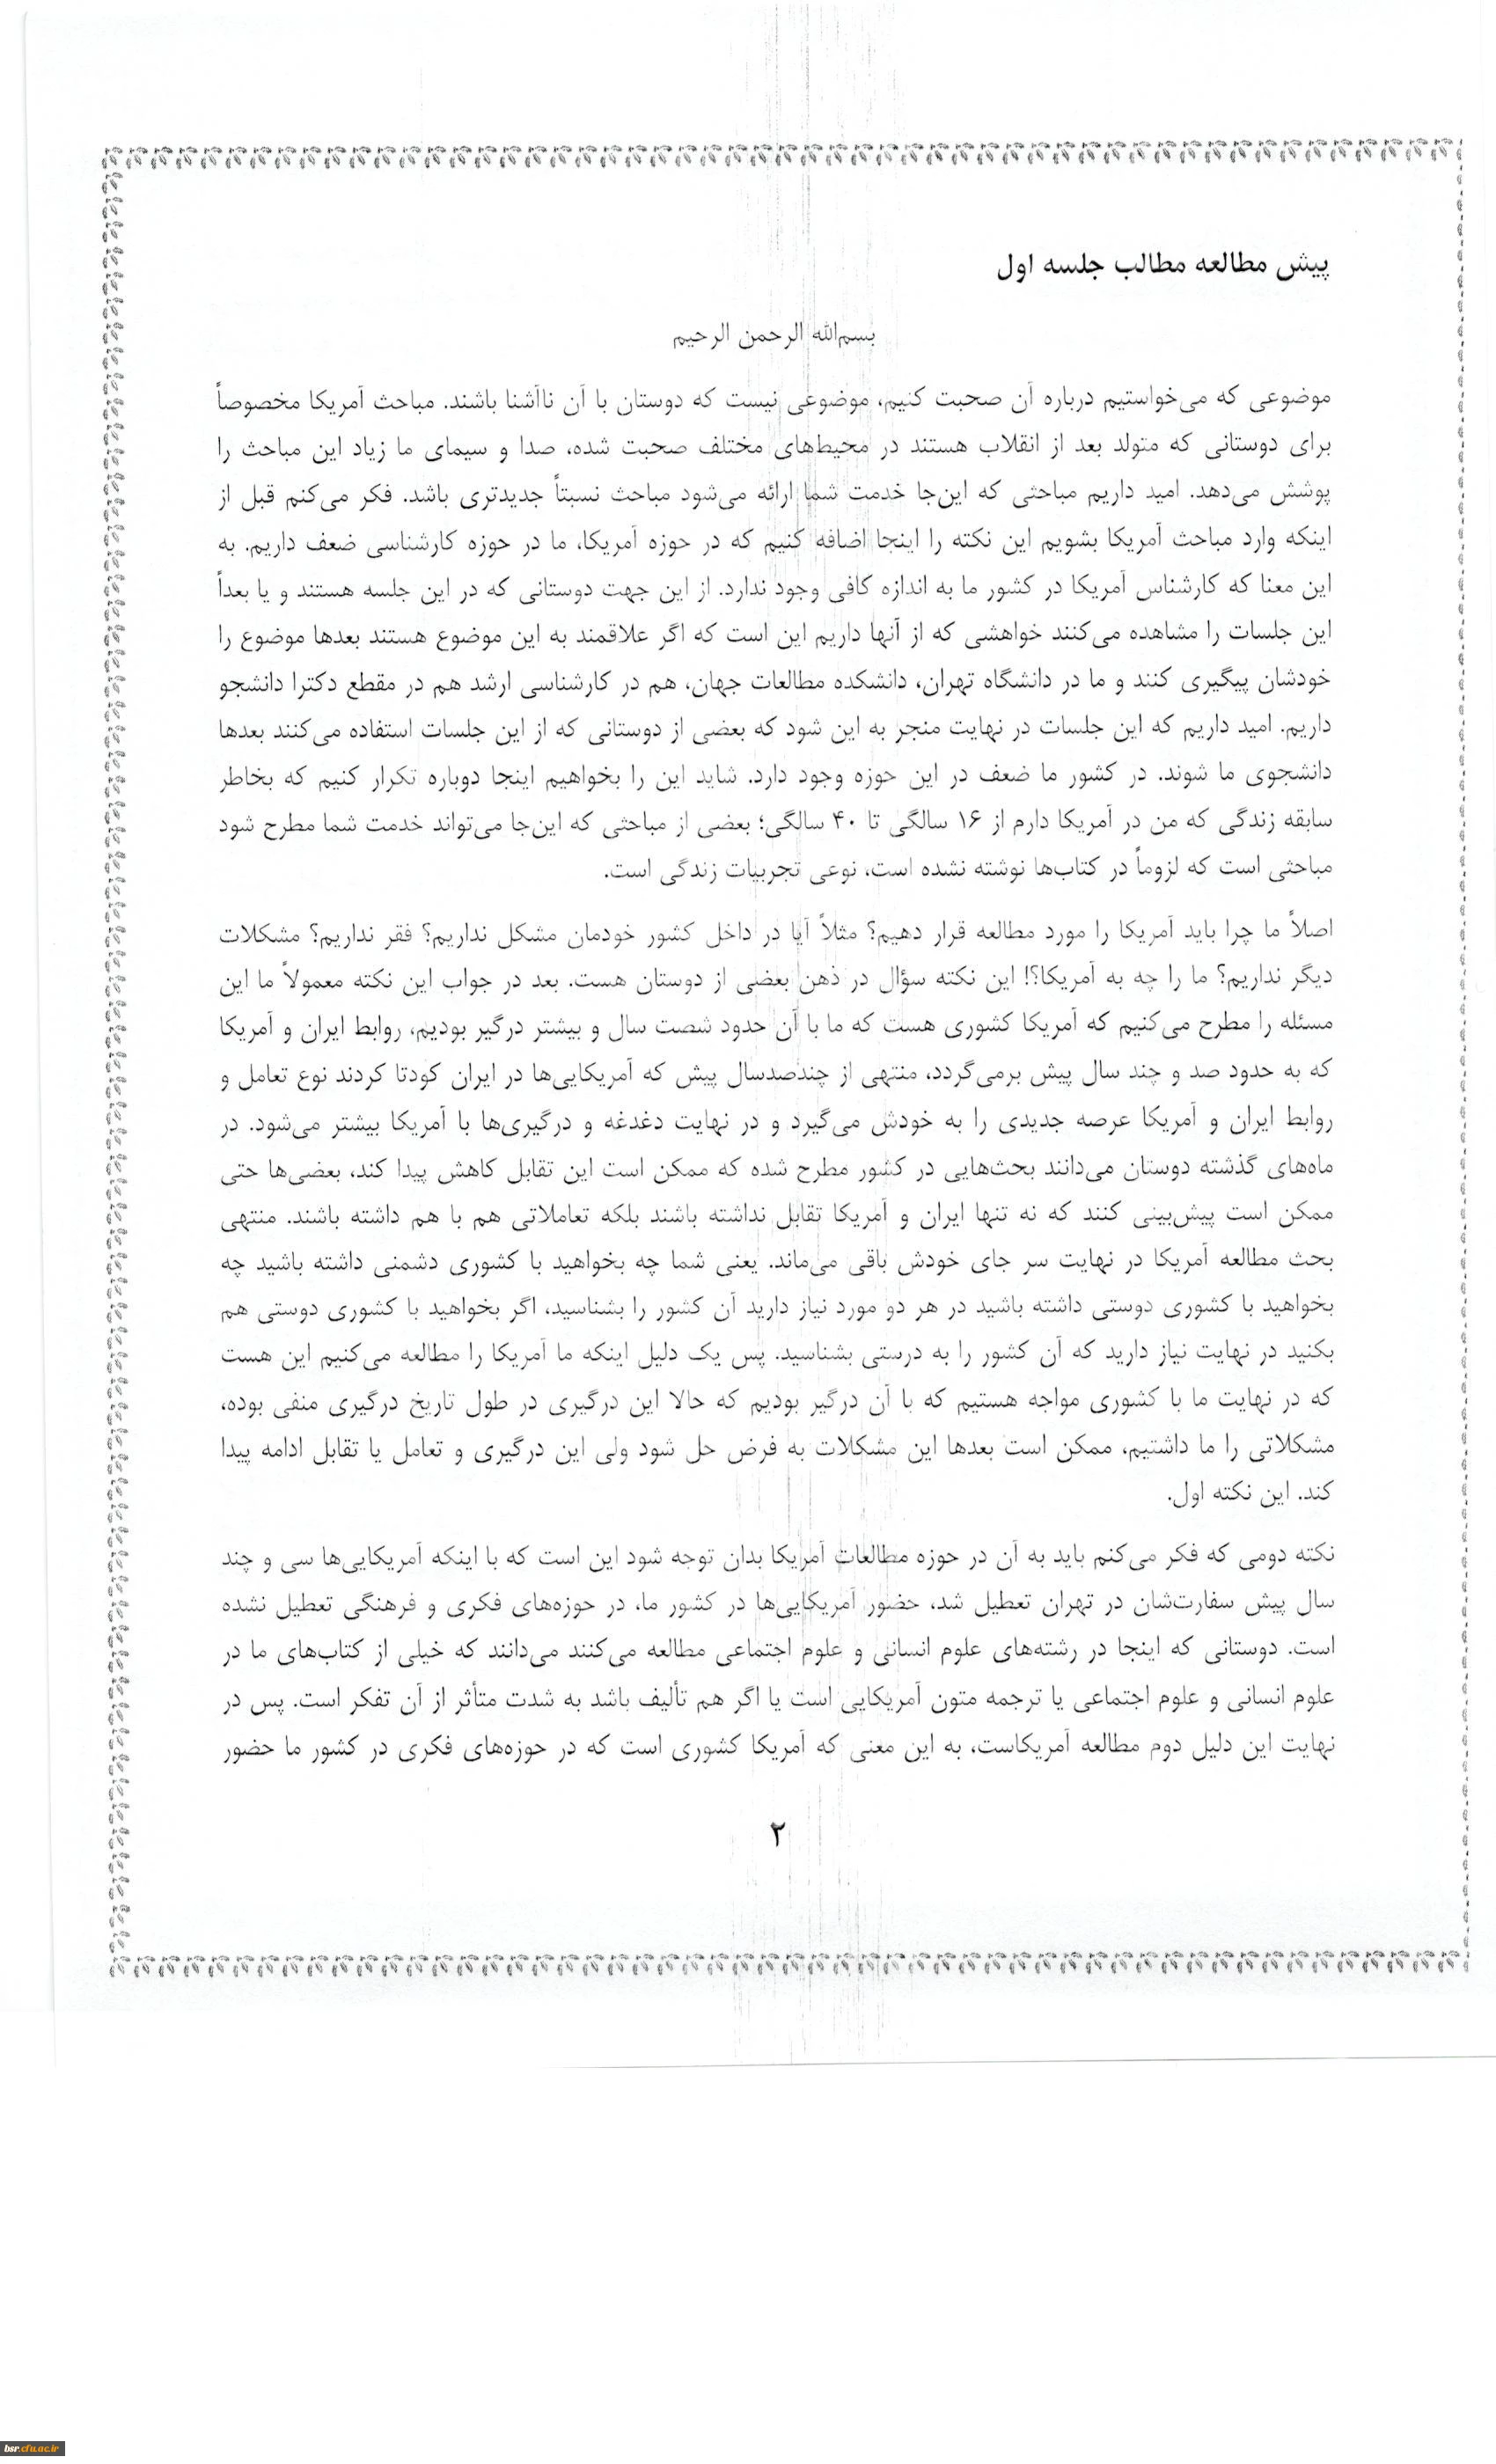 پیش مطالعه مطالب جلسه اول
بسم‌الله الرحمن الرحیم
موضوعی که می‌خواستیم درباره آن صحبت کنیم، موضوعی نیست که دوستان با آن ناآشنا باشند. مباحث آمریکا مخصوصاً
برای دوستانی که متولد بعد از انقلاب هستند در محیط‌های مختلف صحبت شده، صدا و سیمای ما زیاد این مباحث را
پوشش می‌دهد. امید داریم مباحثی که این‌جا خدمت شما ارائه می‌شود مباحث نسبتاً جدیدتری باشد. فکر می‌کنم قبل از
اینکه وارد مباحث آمریکا بشویم این نکته را اینجا اضافه کنیم که در حوزه آمریکا، ما در حوزه کارشناسی ضعف داریم. به
این معنا که کارشناس آمریکا در کشور ما به اندازه کافی وجود ندارد. از این جهت دوستانی که در این جلسه هستند و یا بعداً
این جلسات را مشاهده می‌کنند خواهشی که از آنها داریم این است که اگر علاقمند به این موضوع هستند بعدها موضوع را
خودشان پیگیری کنند و ما در دانشگاه تهران، دانشکده مطالعات جهان، هم در کارشناسی ارشد هم در مقطع دکترا دانشجو
داریم. امید داریم که این جلسات در نهایت منجر به این شود که بعضی از دوستانی که از این جلسات استفاده می‌کنند بعدها
دانشجوی ما شوند. در کشور ما ضعف در این حوزه وجود دارد. شاید این را بخواهیم اینجا دوباره تکرار کنیم که بخاطر
سابقه زندگی که من در آمریکا دارم از ۱۶ سالگی تا ۴۰ سالگی؛ بعضی از مباحثی که این‌جا می‌تواند خدمت شما مطرح شود
مباحثی است که لزوماً در کتاب‌ها نوشته نشده است، نوعی تجربیات زندگی است.
اصلاً ما چرا باید آمریکا را مورد مطالعه قرار دهیم؟ مثلاً آیا در داخل کشور خودمان مشکل نداریم؟ فقر نداریم؟ مشکلات
دیگر نداریم؟ ما را چه به آمریکا؟! این نکته سؤال در ذهن بعضی از دوستان هست. بعد در جواب این نکته معمولاً ما این
مسئله را مطرح می‌کنیم که آمریکا کشوری هست که ما با آن حدود شصت سال و بیشتر درگیر بودیم، روابط ایران و آمریکا
که به حدود صد و چند سال پیش برمی‌گردد، منتهی از چندصدسال پیش که آمریکایی‌ها در ایران کودتا کردند نوع تعامل و
روابط ایران و آمریکا عرصه جدیدی را به خودش می‌گیرد و در نهایت دغدغه و درگیری‌ها با آمریکا بیشتر می‌شود. در
ماه‌های گذشته دوستان می‌دانند بحث‌هایی در کشور مطرح شده که ممکن است این تقابل کاهش پیدا کند، بعضی‌ها حتی
ممکن است پیش‌بینی کنند که نه تنها ایران و آمریکا تقابل نداشته باشند بلکه تعاملاتی هم با هم داشته باشند. منتهی
بحث مطالعه آمریکا در نهایت سر جای خودش باقی می‌ماند. یعنی شما چه بخواهید با کشوری دشمنی داشته باشید چه
بخواهید با کشوری دوستی داشته باشید در هر دو مورد نیاز دارید آن کشور را بشناسید، اگر بخواهید با کشوری دوستی هم
بکنید در نهایت نیاز دارید که آن کشور را به درستی بشناسید. پس یک دلیل اینکه ما آمریکا را مطالعه می‌کنیم این هست
که در نهایت ما با کشوری مواجه هستیم که با آن درگیر بودیم که حالا این درگیری در طول تاریخ درگیری منفی بوده،
مشکلاتی را ما داشتیم، ممکن است بعدها این مشکلات به فرض حل شود ولی این درگیری و تعامل یا تقابل ادامه پیدا
کند. این نکته اول.
نکته دومی که فکر می‌کنم باید به آن در حوزه مطالعات آمریکا بدان توجه شود این است که با اینکه آمریکایی‌ها سی و چند
سال پیش سفارت‌شان در تهران تعطیل شد، حضور آمریکایی‌ها در کشور ما، در حوزه‌های فکری و فرهنگی تعطیل نشده
است. دوستانی که اینجا در رشته‌های علوم انسانی و علوم اجتماعی مطالعه می‌کنند می‌دانند که خیلی از کتاب‌های ما در
علوم انسانی و علوم اجتماعی یا ترجمه متون آمریکایی است یا اگر هم تألیف باشد به شدت متأثر از آن تفکر است. پس در
نهایت این دلیل دوم مطالعه آمریکاست، به این معنی که آمریکا کشوری است که در حوزه‌های فکری در کشور ما حضور
۲
bsr.cfu.ac.ir